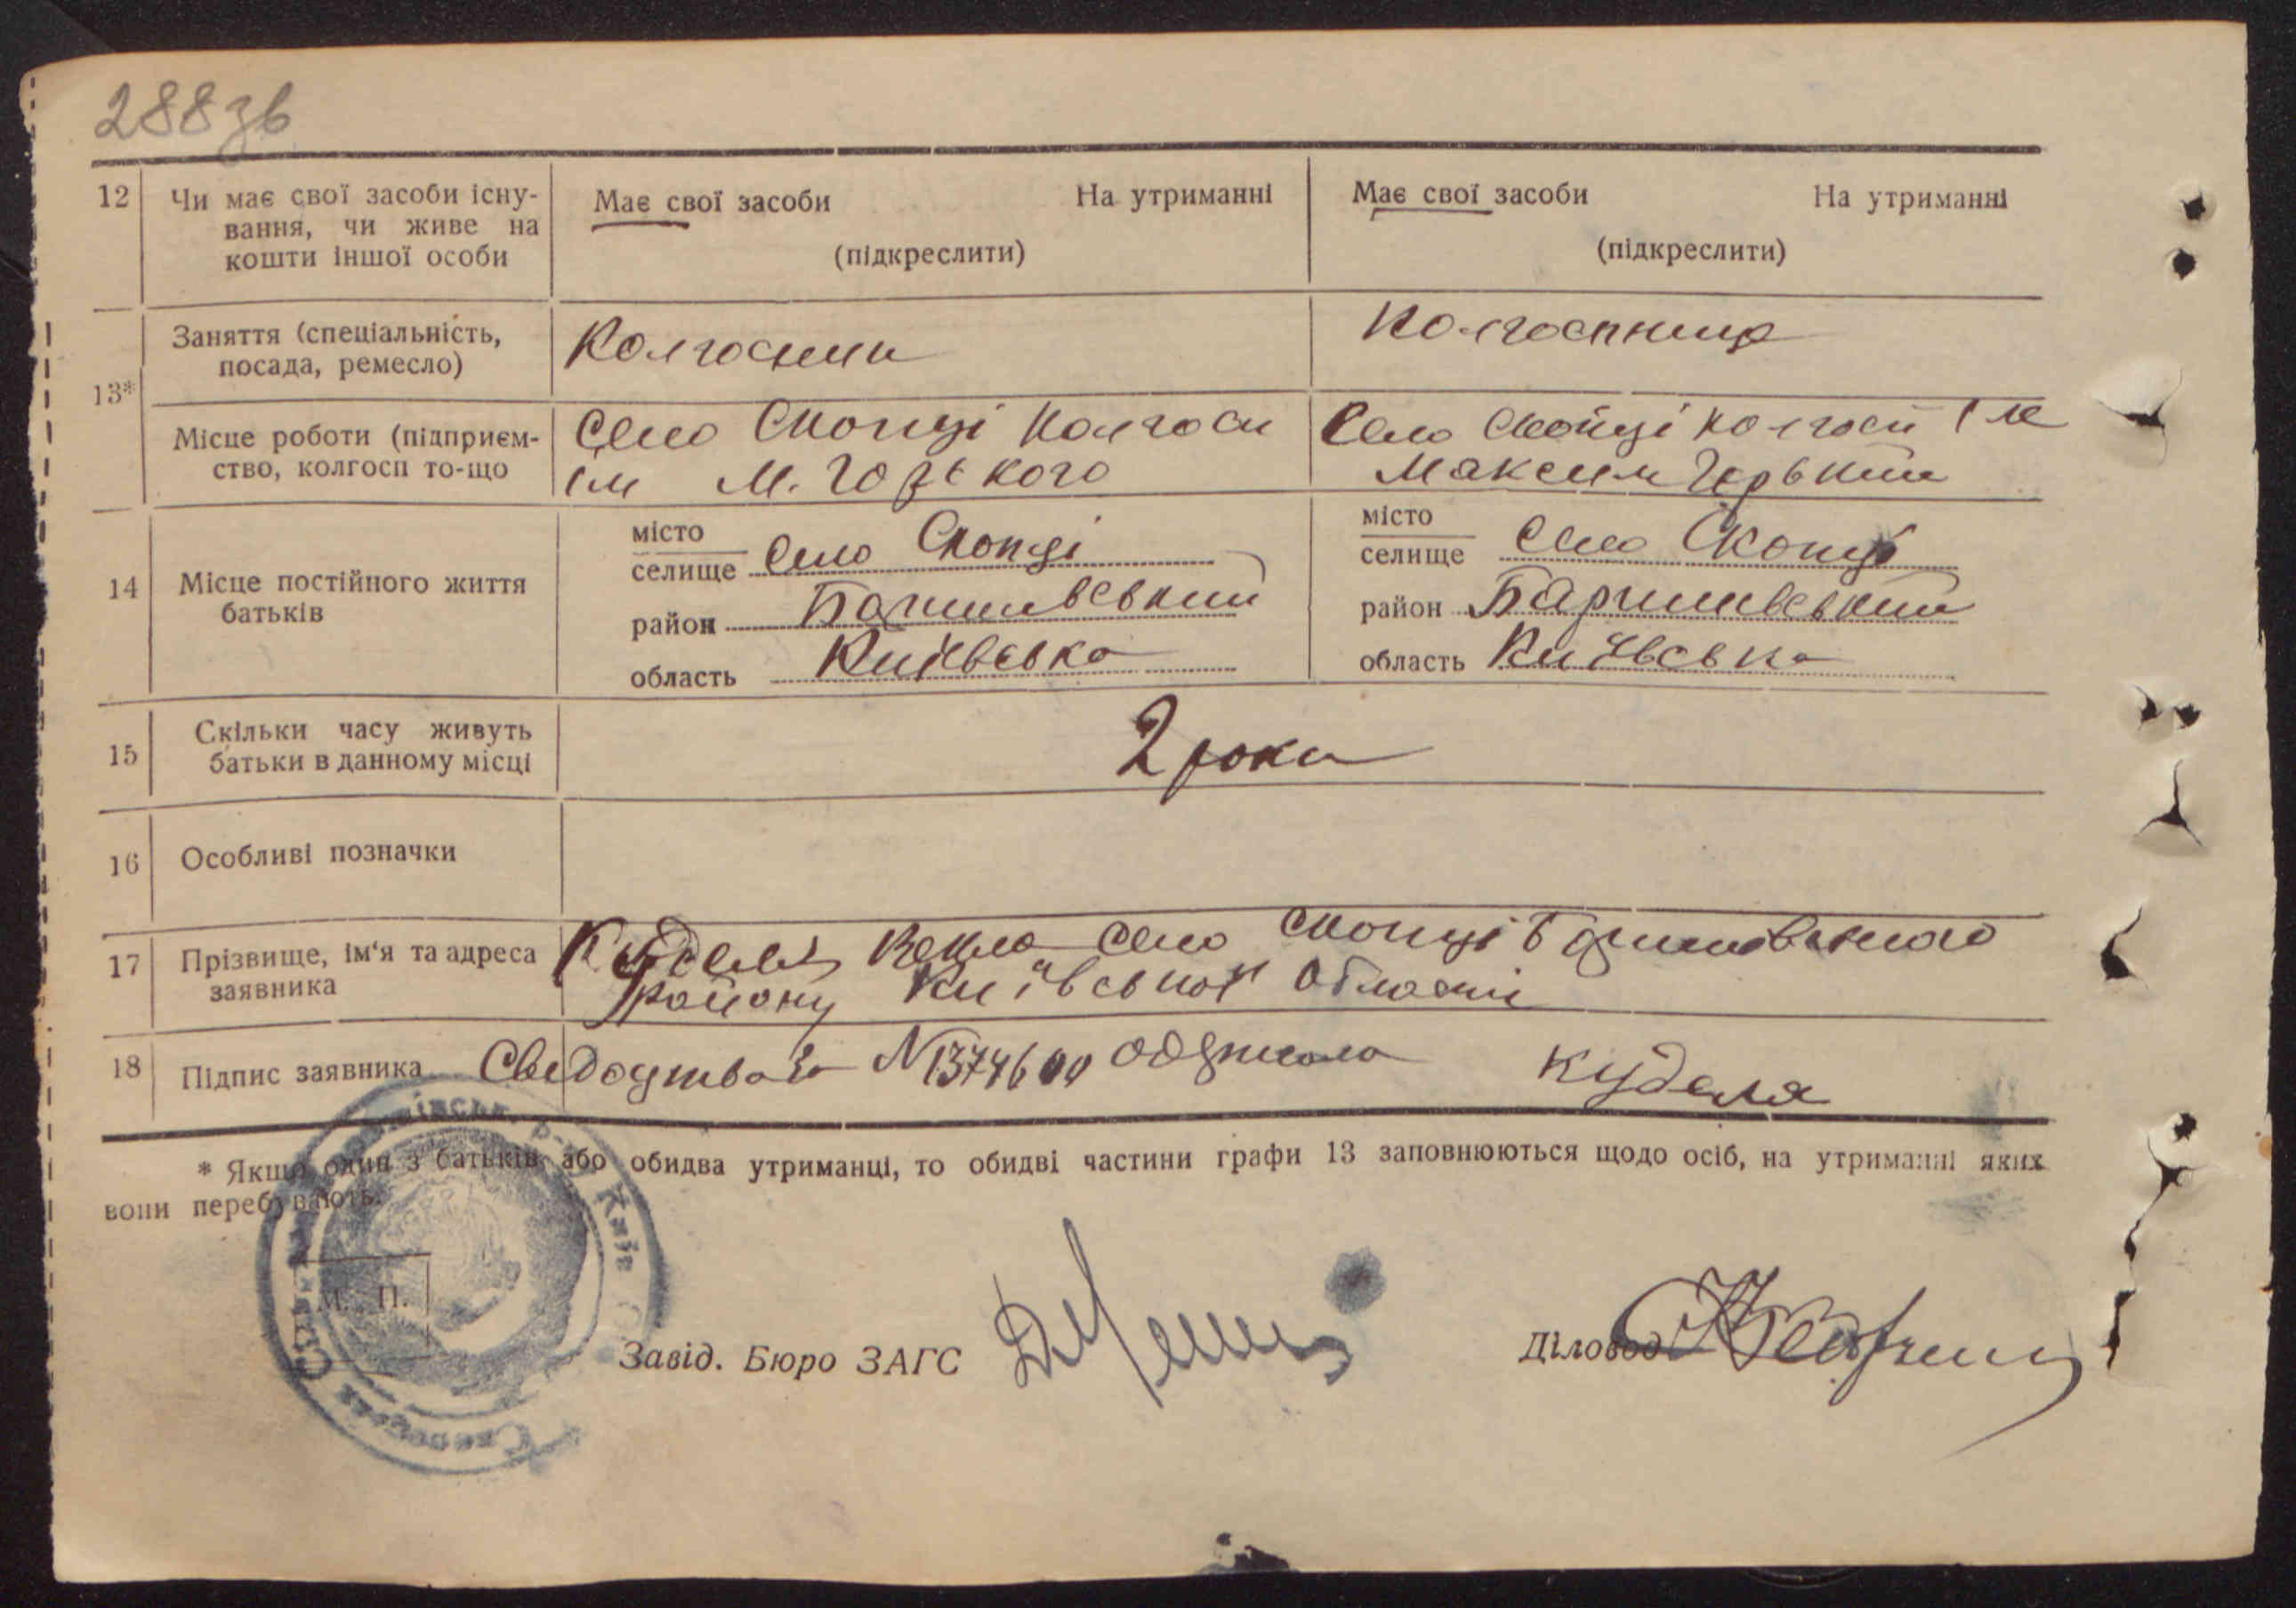 288зв
12 Чи має свої засоби існу- Має свої засоби На утриманні Має свої засоби На утриманні
вання, чи живе на
кошти іншої особи (підкреслити) (підкреслити)
13* Заняття (спеціальність, Колгоспник Колгоспниця
посада, ремесло)
Місце роботи (підприєм- Село Скопці колгосп Село Скопці колгосп ім
ство, колгосп то-що ім М. Горького Максим Горький
14 Місце постійного життя місто місто
батьків селище Село Скопці селище Село Скопці
район Баришивський район Баришивський
область Київська область Київська
15 Скільки часу живуть 2 роки
батьки в данному місці
16 Особливі позначки
17 Прізвище, ім'я та адреса Куделя Векла село Скопці Баришовського
заявника району Київської області
18 Підпис заявника Свидоцтво за N 1374600 одержала Куделя
* Якщо один з батьків або обидва утриманці, то обидві частини графи 13 заповнюються щодо осіб, на утриманні яких
вони перебувають.
М. П.
Завід. Бюро ЗАГС
Діловод